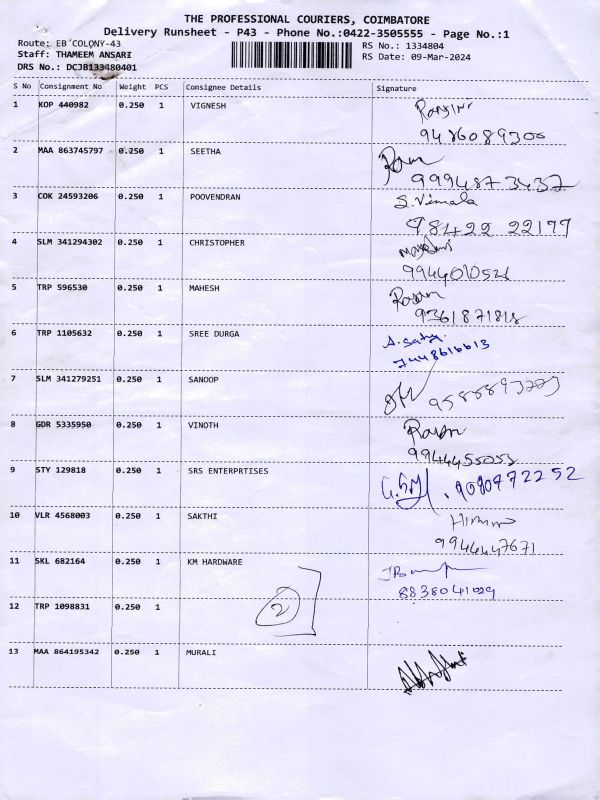 THE PROFESSIONAL COURIERS, COIMBATORE
Delivery Runsheet - P43 - Phone No.:0422-3505555 - Page No.:1
Route: EB COLONY-43 RS No.: 1334804
Staff: THAMEEM ANSARI RS Date: 09-Mar-2024
DRS No.: DCJB133480401
S No Consignment No Weight PCS Consignee Details Signature
1 KOP 440982 0.250 1 VIGNESH
9486089300
2 MAA 863745797 0.250 1 SEETHA Ram
9994873437
3 COK 24593206 0.250 1 POOVENDRAN S. Vimala
98422 22177
4 SLM 341294302 0.250 1 CHRISTOPHER
5 TRP 596530 0.250 1 MAHESH
9361871818
6 TRP 1105632 0.250 1 SREE DURGA
7448616613
7 SLM 341279251 0.250 1 SANOOP
8 GDR 5335950 0.250 1 VINOTH
9944455053
9 STY 129818 0.250 1 SRS ENTERPRTISES
10 VLR 4568003 0.250 1 SAKTHI
9944447671
11 SKL 682164 0.250 1 KM HARDWARE
8838041029
12 TRP 1098831 0.250 1 2
13 MAA 864195342 0.250 1 MURALI